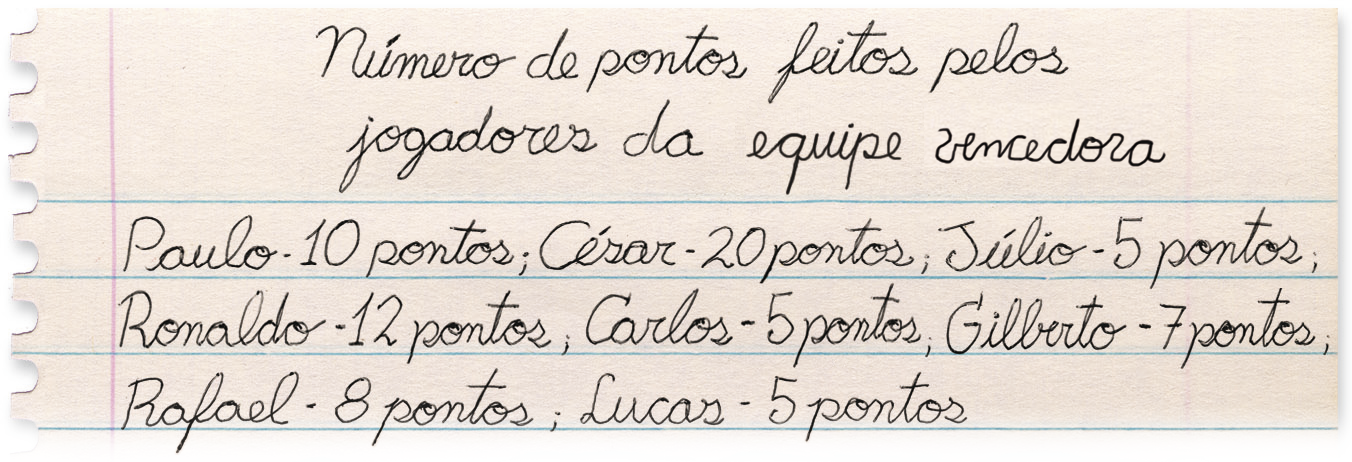 Número de pontos feitos pelos
jogadores da equipe vencedora
Paulo - 10 pontos; César - 20 pontos; Júlio - 5 pontos;
Ronaldo - 12 pontos; Carlos - 5 pontos; Gilberto - 7 pontos;
Rafael - 8 pontos; Lucas - 5 pontos